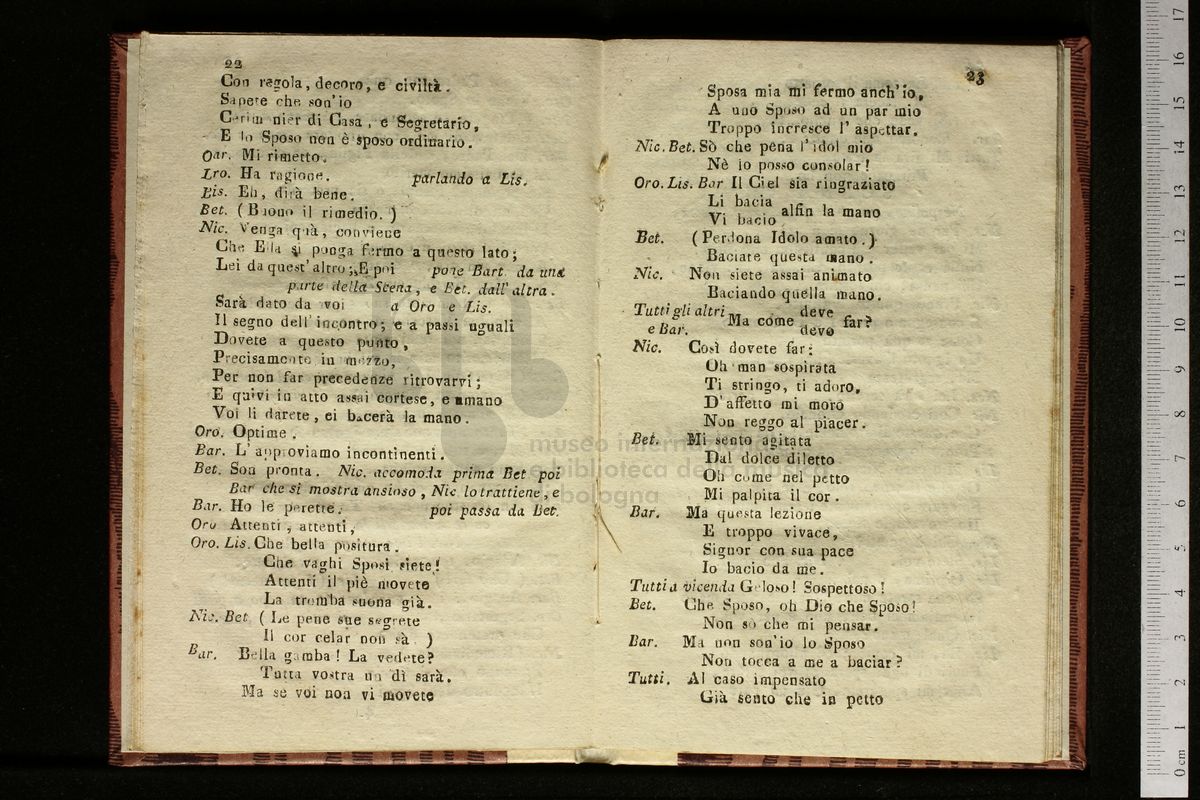 22
Con regola, decoro, e civiltà.
Sapete che son'io
Cerim nier di Casa, e Segretario,
E lo Sposo non è sposo ordinario.
Oar. Mi rimetto.
Lro. Ha ragione. parlando a Lis.
Eis. Eh, dirà bene.
Bet. (Buono il rimedio.)
Nic. Venga quà, conviene
Che Ella si ponga fermo a questo lato;
Lei da quest'altro; E poi pone Bart. da una
parte della Scena, e Bet. dall' altra.
Sarà dato da voi a Oro e Lis.
Il segno dell'incontro; e a passi uguali
Dovete a questo punto,
Precisamente in mezzo,
Per non far precedenze ritrovarvi;
E quivi in atto assai cortese, e umano
Voi li darete, ei bacerà la mano.
Oro. Optime.
Bar. L'approviamo incontinenti.
Bet. Son pronta. Nic. accomoda prima Bet poi
Bar che si mostra ansioso, Nic lo trattiene, e
Bar. Ho le perette. poi passa da Bet.
Oro Attenti, attenti,
Oro. Lis. Che bella positura.
Che vaghi Sposi siete!
Attenti il piè movete
La tromba suona già.
Nic. Bet (Le pene sue segrete
Il cor celar non sà.)
Bar. Bella gamba! La vedete?
Tutta vostra un dì sarà.
Ma se voi non vi movete
23
Sposa mia mi fermo anch'io,
A uno Sposo ad un par mio
Troppo incresce l' aspettar.
Nic. Bet. Sò che pena l'idol mio
Nè io posso consolar!
Oro. Lis. Bar Il Ciel sia ringraziato
Li bacia
Vi bacio alfin la mano
Bet. (Perdona Idolo amato.)
Baciate questa mano.
Nic. Non siete assai animato
Baciando quella mano.
Tutti gli altri Ma come deve far?
e Bar. devo
Nic. Così dovete far:
Oh man sospirata
Ti stringo, ti adoro,
D'affetto mi moro
Non reggo al piacer.
Bet. Mi sento agitata
Dal dolce diletto
Oh come nel petto
Mi palpita il cor.
Bar. Ma questa lezione
E troppo vivace,
Signor con sua pace
Io bacio da me.
Tutti a vicenda Geloso! Sospettoso!
Bet. Che Sposo, oh Dio che Sposo!
Non so che mi pensar.
Bar. Ma non son'io lo Sposo
Non tocca a me a baciar?
Tutti. Al caso impensato
Già sento che in petto
museo internazionale
e biblioteca della musica
bologna
17
16
15
14
13
12
11
10
9
8
7
6
5
4
3
2
1
0 cm